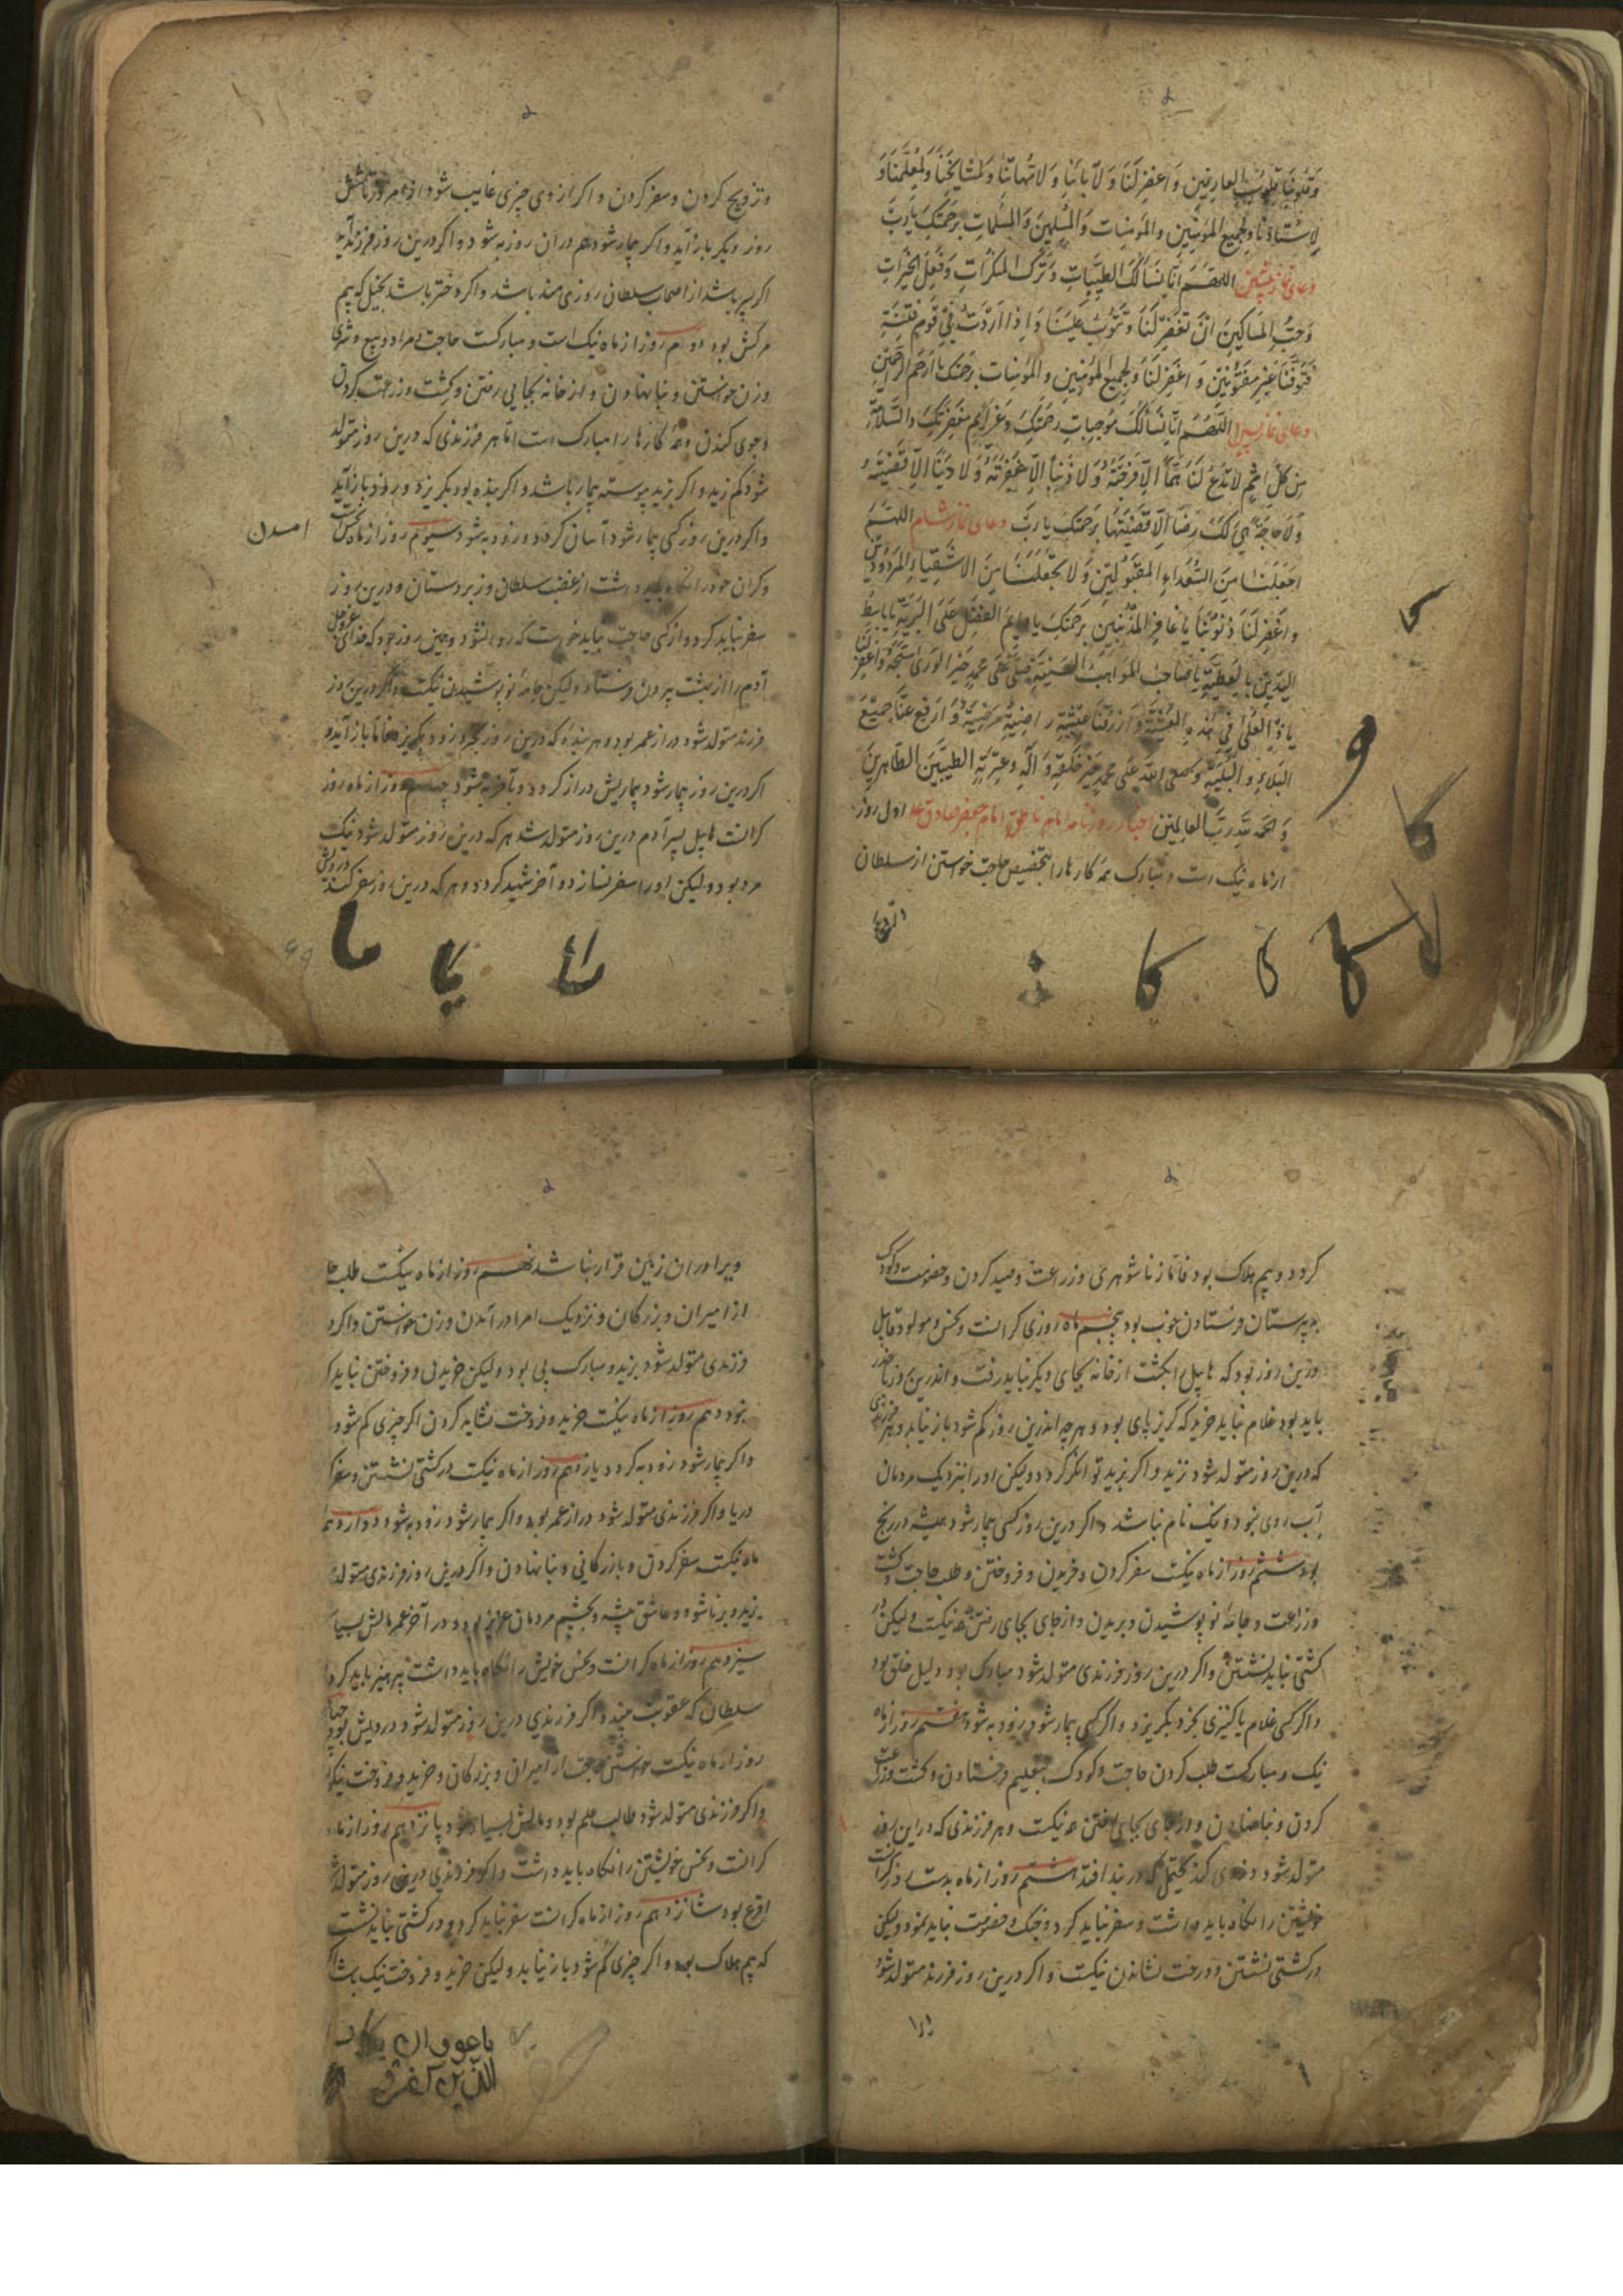 وَقُلُوبَنَا قُلُوبَ العارِفِينَ وَاغفِر لَنَا وَلِآبائِنَا وَلِاُمَّهاتِنَا وَلِمَشايِخِنَا وَلِمُعَلِّمِنَا وَ
لِاُستادِنَا وَلِجَمِيعِ المُؤمِنِينَ وَالمُؤمِنات وَالمُسلِمِينَ وَالمُسلِماتِ بِرَحمَتِكَ يَارَبّ
دعای نماز پیشین اللهُمَّ اِنّا نَسأَلُكَ الطَّيِّباتِ وَتَركَ المُنكَراتِ وَفِعلَ الخَيراتِ
وَحُبَّ المَساكِينَ اَن تَغفِرَ لَنَا وَتَتُوبَ عَلَينَا وَاِذا اَرَدتَ فِي قَومٍ فِتنَةً
فَتَوَفَّنَا غَيرَ مَفتُونِينَ وَاغفِر لَنَا وَلِجَمِيعِ المُؤمِنِينَ وَالمُؤمِنات بِرَحمَتِكَ يا اَرحَمَ الرّاحِمِينَ
دعای نماز اللهُمَّ اِنّا نَسأَلُكَ مُوجِباتِ رَحمَتِكَ وَعَزائِمَ مَغفِرَتِكَ وَالسَّلامَةَ
مِن كُلِّ اِثمٍ لا تَدَع لَنَا هَمًّا اِلّا فَرَّجتَهُ وَلا ذَنبًا اِلّا غَفَرتَهُ وَلا دَينًا اِلّا قَضَيتَهُ
وَلا حاجَةً هِيَ لَكَ رِضًا اِلّا قَضَيتَهَا بِرَحمَتِكَ يا رَبّ دعای نماز شام اللهُمَّ
اجعَلنَا مِنَ السُّعَداءِ المَقبُولِينَ وَلا تَجعَلنَا مِنَ الاَشقِياءِ المَردُودِينَ
وَاغفِر لَنَا ذُنُوبَنَا يا غافِرَ المُذنِبِينَ بِرَحمَتِكَ يا دايِمَ الفَضلِ عَلَى البَرِيَّةِ يا باسِطَ
اليَدَينِ بِالعَطِيَّةِ يا صاحِبَ المَواهِبِ السَّنِيَّةِ صَلِّ عَلى مُحَمَّدٍ خَيرِ الوَرى سَجِيَّةً وَاغفِر لَنَا
يا ذَا العُلى فِي هٰذِهِ العَشِيَّةِ وَارزُقنَا عِيشَةً راضِيَةً مَرضِيَّةً وَارفَع عَنّا جَمِيعَ
البَلاءِ وَالبَلِيَّةِ وَصَلَّى اللهُ عَلى مُحَمَّدٍ خَيرِ خَلقِهِ وَآلِهِ وَعِترَتِهِ الطَّيِّبِينَ الطّاهِرِينَ
وَالحَمدُ لِلّهِ رَبِّ العالَمِينَ اختیار روزنامه امام ناطق امام جعفر صادق اول روز
از ماه نیک است و مبارک همه کارها را بتخصیص حاجت خواستن از سلطان
و تزویج کردن و سفر کردن و اکر از وی چیزی غایب شود از امروز تا شش
روز دیکر باز آید و اکر بیمار شود هم در آن روز به شود و اکر درین روز فرزند آید
اکر پسر باشد از اصحاب سلطان روزی مند باشد و اکر دختر باشد بخیل که بیم
مرکش بود دوم روز از ماه نیک است و مبارکست حاجت بمراد و بیع و شری
و زن خواستن و بنا نهادن و از خانه بجایی رفتن و کشت و زراعت کردن
و جوی کندن و همه کارها را مبارک است اما هر فرزندی که درین روز متولد
شود کم زید و اکر بزید پیوسته بیمار باشد و اکر بنده بود بکریزد و زود باز آید
و اکر درین روز کسی بیمار شود آسان کردد و زود به شود سیوم روز از ماه نحس است
و کران خود را نکاه باید داشت از غضب سلطان و زبردستان و درین روز
امدن
سفر نباید کرد و از کسی حاجت نباید خواست که روا نشود و همین روز بود که خدای عزوجل
آدم را از بهشت بیرون فرستاد ولیکن جامه نو پوشیدن نیکست و اکر درین روز
فرزند متولد شود دراز عمر بود و هر بنده که درین روز بخرند زود بکریزد فاما باز آید و
اکر درین روز بیمار شود بیماریش دراز کردد و بآخر به شود چهارم روز از ماه روز
کرانست هابیل پسر آدم درین روز متولد شد هر که درین روز متولد شود نیک
مرد بود ولیکن او را سفر نسازد و آخر شهید کردد و هر که درین روز سفر کند درویش
کردد و بیم هلاک بود فاما زناشوهری و زراعت و صید کردن و خصومت و کودک
بدبیرستان فرستادن خوب بود پنجم ماه روزی کرانست و نحس و مولود قابیل
درین روز بود که هابیل را بکشت از خانه بجای دیکر نباید رفت و اندرین روز حذر
باید بود غلام نباید خرید که کریز پای بود و هر چه اندرین روز کم شود باز نیابد و هر فرزندی
که درین روز متولد شود نزید و اکر بزید توانکر کردد ولیکن او را بنزدیک مردمان
آب روی نبود و نیک نام نباشد و اکر درین روز کسی بیمار شود همیشه در رنج
بود ششم روز از ماه نیکست سفر کردن و خریدن و فروختن و طلب حاجت و کشت
و زراعت و جامه نو پوشیدن و بریدن و از جای بجای رفتن همه نیکست ولیکن در
کشتی نباید نشستن و اکر درین روز فرزندی متولد شود مبارک بود و دلیل خلق بود
و اکر کسی غلام یا کنیزی بخرد بکریزد و اکر کسی بیمار شود زود به شود هفتم روز از ماه
نیک و مبارکست طلب کردن حاجت و کودک بتعلیم فرستادن و کشت و زراعت
کردن و بنا نهادن و از جای بجای رفتن همه نیکست و هر فرزندی که در این روز
متولد شود دزدی کند که در بند افتد هشتم روز از ماه بدست و کرانست
خویشتن را نکاه باید داشت و سفر نباید کرد و جنک و خصومت نباید نمود ولیکن
در کشتی نشستن و درخت نشاندن نیکست و اکر درین روز فرزند متولد شود
ویرا در آن زمین قرار نباشد نهم روز از ماه نیکست طلب حا
از امیران و بزرکان و نزدیک امرا در آمدن و زن خواستن و اکر د
فرزندی متولد شود بزید و مبارک پی بود ولیکن خریدن و فروختن نباید کر
بود دهم روز از ماه نیکست خرید و فروخت نشاید کردن اکر چیزی کم شود
و اکر بیمار شود زود به کردد یازدهم روز از ماه نیکست در کشتی نشستن و سفر
دریا و اکر فرزندی متولد شود دراز عمر بود و اکر بیمار شود زود به شود دوازدهم
ماه نیکست سفر کردن و بازرکانی و بنا نهادن و اکر درین روز فرزندی متولد
بزید و برنا شود و عاشق پیشه و بچشم مردمان عزیز بود و در آخر عمر مالش بسیار
سیزدهم روز از ماه کرانست و نحس خویش را نکاه باید داشت پرهیز باید کرد از
سلطان که عقوبت بیند و اکر فرزندی درین روز متولد شود درویش بود چهار
روز از ماه نیکست خواستن حاجت از امیران و بزرکان و خرید و فروخت نیک
و اکر فرزندی متولد شود طالب علم بود و مالش بسیار شود پانزدهم روز از ماه
کرانست و نحس خویشتن را نکاه باید داشت و اکر فرزندی درین روز متولد
اقرع بود شانزدهم روز از ماه کرانست سفر نباید کرد و در کشتی نباید نشست
که بیم هلاک بود و اکر چیزی کم شود باز نیابد ولیکن خرید و فروخت نیک باشد
یکاد
الذین کفرو